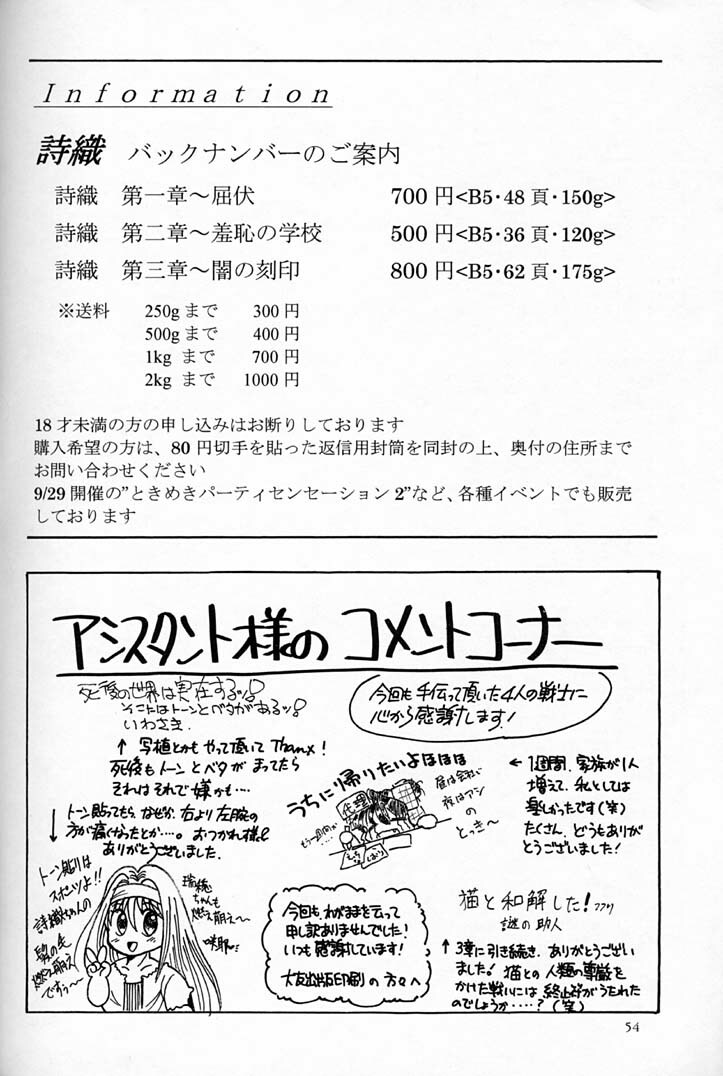 Information
詩織 バックナンバーのご案内
詩織 第一章～屈伏 700円<B5・48頁・150g>
詩織 第二章～羞恥の学校 500円<B5・36頁・120g>
詩織 第三章～闇の刻印 800円<B5・62頁・175g>
※送料 250gまで 300円
500gまで 400円
1kg まで 700円
2kg まで 1000円
18才未満の方の申し込みはお断りしております
購入希望の方は、80円切手を貼った返信用封筒を同封の上、奥付の住所まで
お問い合わせください
9/29開催の”ときめきパーティセンセーション2”など、各種イベントでも販売
しております
アシスタント様のコメントコーナー
死後の世界は実在するッ!
そこにはトーンとベタがあるッ!
いわさき
↑ 写植とかもやって頂いてThanx!
死後もトーンとベタがまってたら
それはそれで嫌かも…
今回も手伝って頂いた4人の戦士に
心から感謝します!
うちに帰りたいよほほほ
昼は会社
夜はアシ
の
とっき～
← 1週間、家族が1人
増えて、私としては
楽しかったです(笑)
たくさん、どうもありが
とうございました!
↓ トーン貼ってもらったら、なぜか、右より左腕の
方が痛くなったとか…。おつかれ様&
ありがとうございました。
トーン貼りは
スポーツよ!!
詩織ちゃんの
髪の毛
燃え萌え
ですぅ～
瑞穂
ちゃんも
燃え萌え～
今回も、わがままを云って
申し訳ありませんでした!
いつも感謝しています!
大友出版印刷の方々へ
猫と和解した!フフフ
謎の助人
↑ 3章に引き続き、ありがとうござい
ました! 猫との人類の尊厳を
かけた戦いには終止符がうたれた
のでしょうか……? (笑)
54